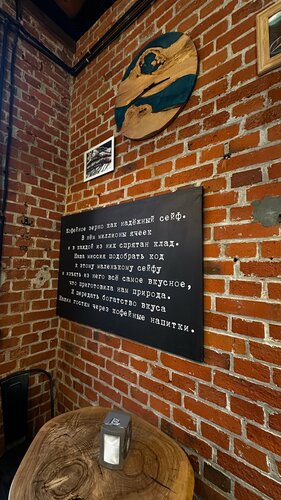 Кофейное зерно как надёжный сейф.
В нём миллионы ячеек
и в каждой из них спрятан клад.
Наша миссия подобрать код
к этому маленькому сейфу
и достать из него всё самое вкусное,
что приготовила нам природа.
И передать богатство вкуса
нашим гостям через кофейные напитки.